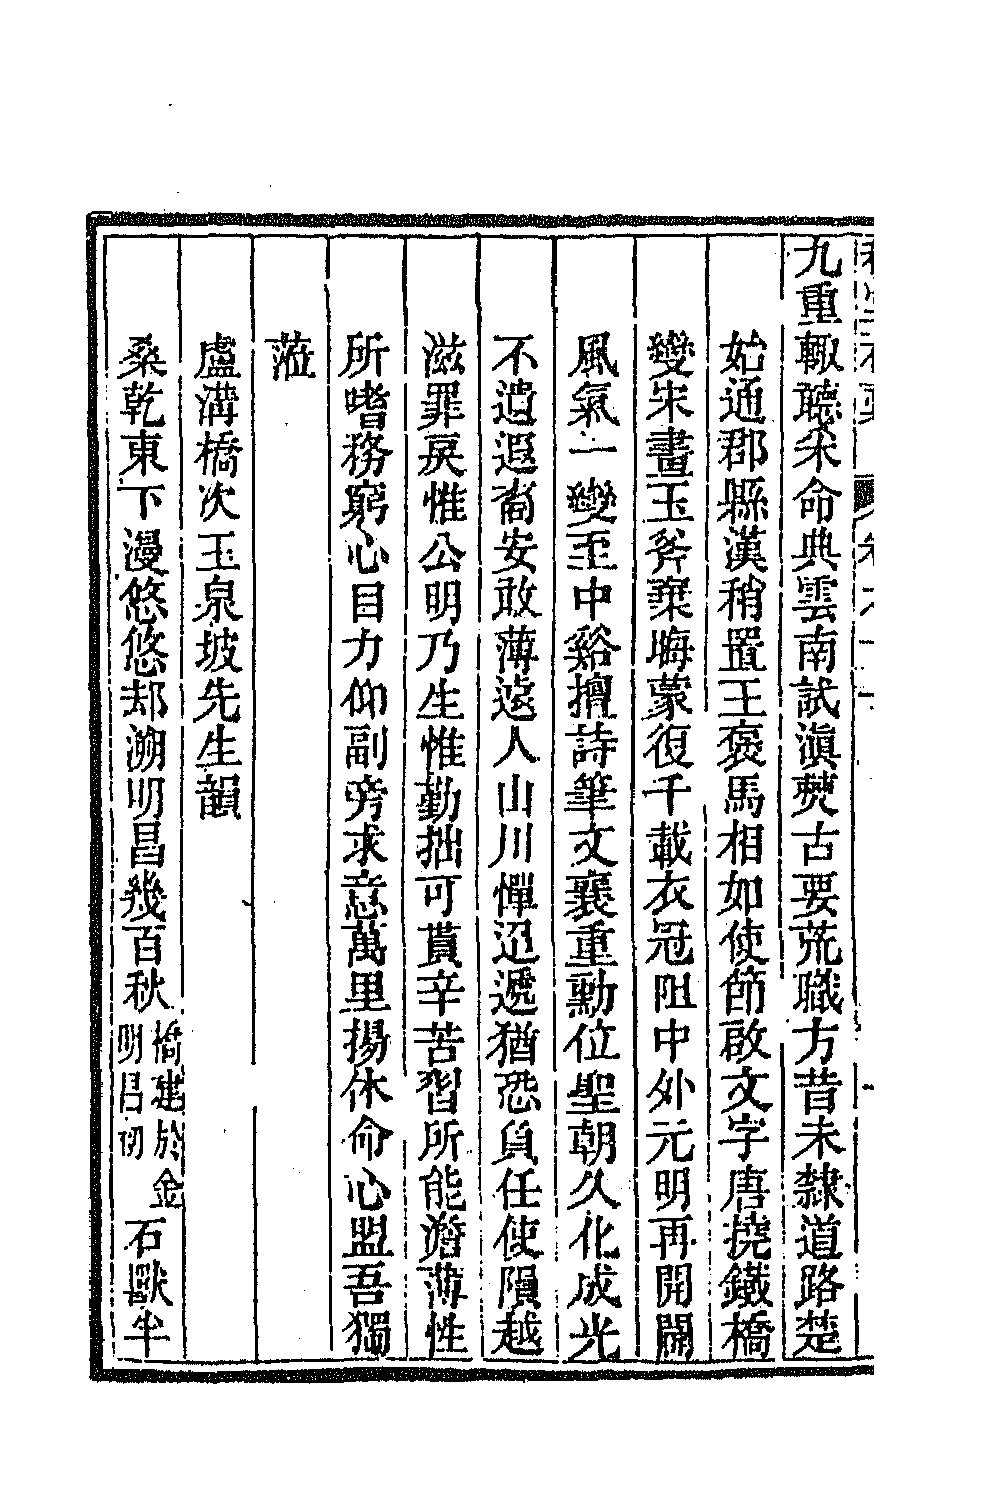 九重輙聽采命典雲南試滇僰古要荒職方昔未隸道路楚
始通郡縣漢稍置王褒馬相如使節啟文字唐撓鐵橋
變宋畫玉斧棄晦蒙復千載衣冠阻中外元明再開闢
風氣一變至中谿擅詩筆文襄重勳位聖朝久化成光
不遺遐裔安敢薄遠人山川憚迅遞猶恐負任使隕越
滋罪戾惟公明乃生惟勤拙可貰辛苦習所能澹薄性
所嗜務窮心目力仰副旁求意萬里揚休命心盟吾獨
蒞
盧溝橋次玉泉坡先生韻
桑乾東下漫悠悠却溯明昌幾百秋橋建於金明昌初石獸半